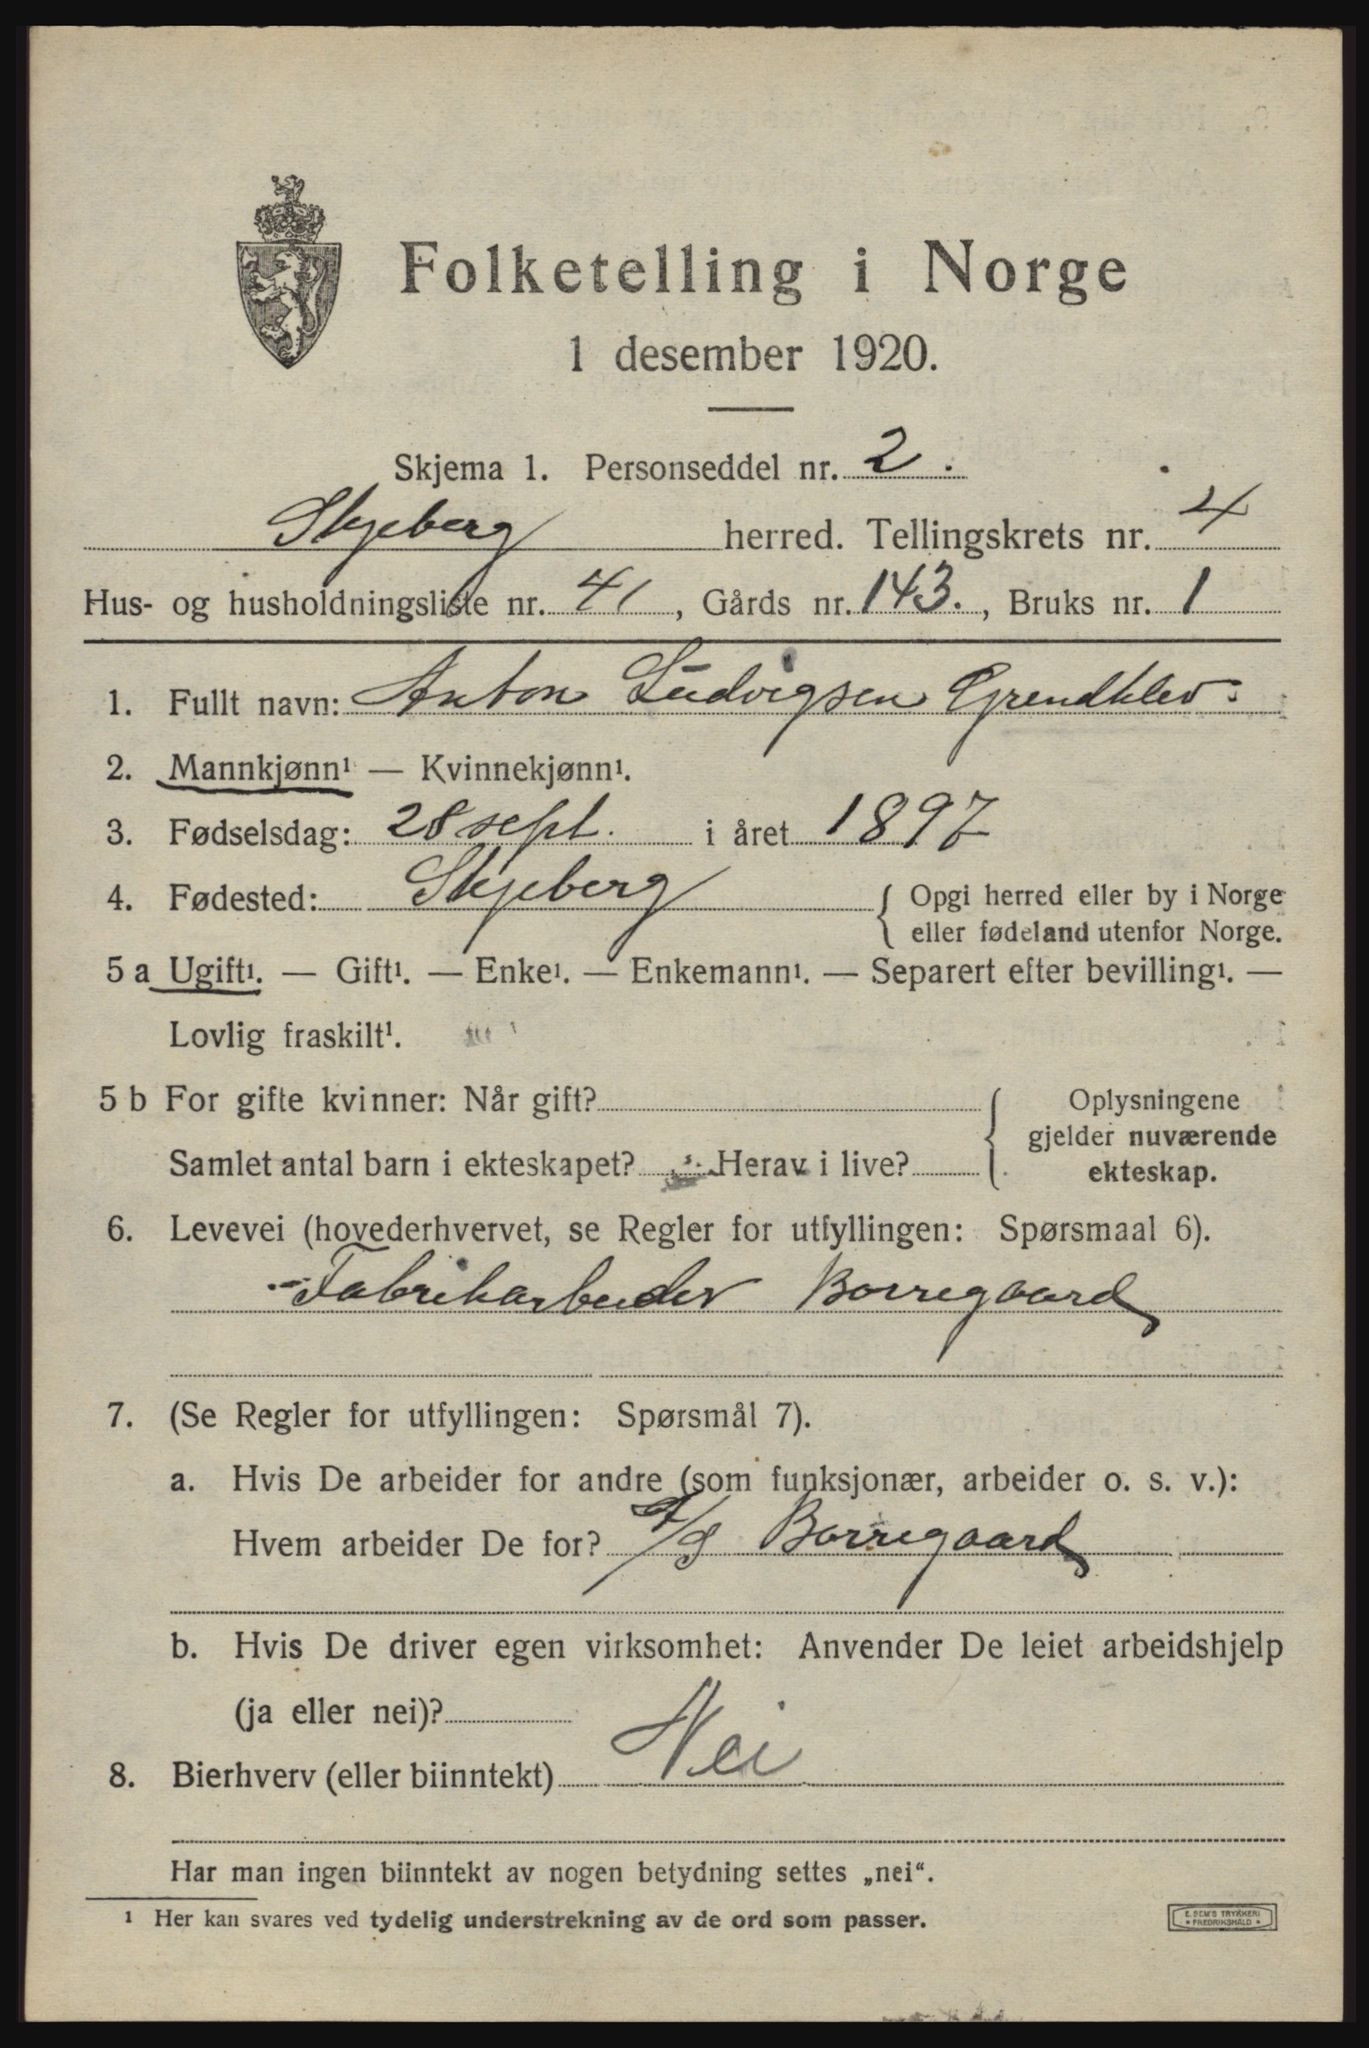 Folketelling i Norge
1 desember 1920.
Skjema 1. Personseddel nr. 2.
Skjeberg herred. Tellingskrets nr. 4
Hus- og husholdningsliste nr. 41, Gårds nr. 143., Bruks nr. 1
1. Fullt navn: Anton Ludvigsen Grendklev.
2. Mannkjønn¹ — Kvinnekjønn¹.
3. Fødselsdag: 28 sept. i året 1897
4. Fødested: Skjeberg { Opgi herred eller by i Norge
eller fødeland utenfor Norge.
5 a Ugift¹. — Gift¹. — Enke¹. — Enkemann¹. — Separert efter bevilling¹. —
Lovlig fraskilt¹.
5 b For gifte kvinner: Når gift? { Oplysningene
gjelder nuværende
Samlet antal barn i ekteskapet? Herav i live? ekteskap.
6. Levevei (hovederhvervet, se Regler for utfyllingen: Spørsmaal 6).
Fabrikarbeider Borregaard
7. (Se Regler for utfyllingen: Spørsmål 7).
a. Hvis De arbeider for andre (som funksjonær, arbeider o. s. v.):
Hvem arbeider De for? A/S Borregaard
b. Hvis De driver egen virksomhet: Anvender De leiet arbeidshjelp
(ja eller nei)?
8. Bierhverv (eller biinntekt) Nei
Har man ingen biinntekt av nogen betydning settes „nei“.
¹ Her kan svares ved tydelig understrekning av de ord som passer.
E. SEM'S TRYKKERI
• FREDRIKSHALD •